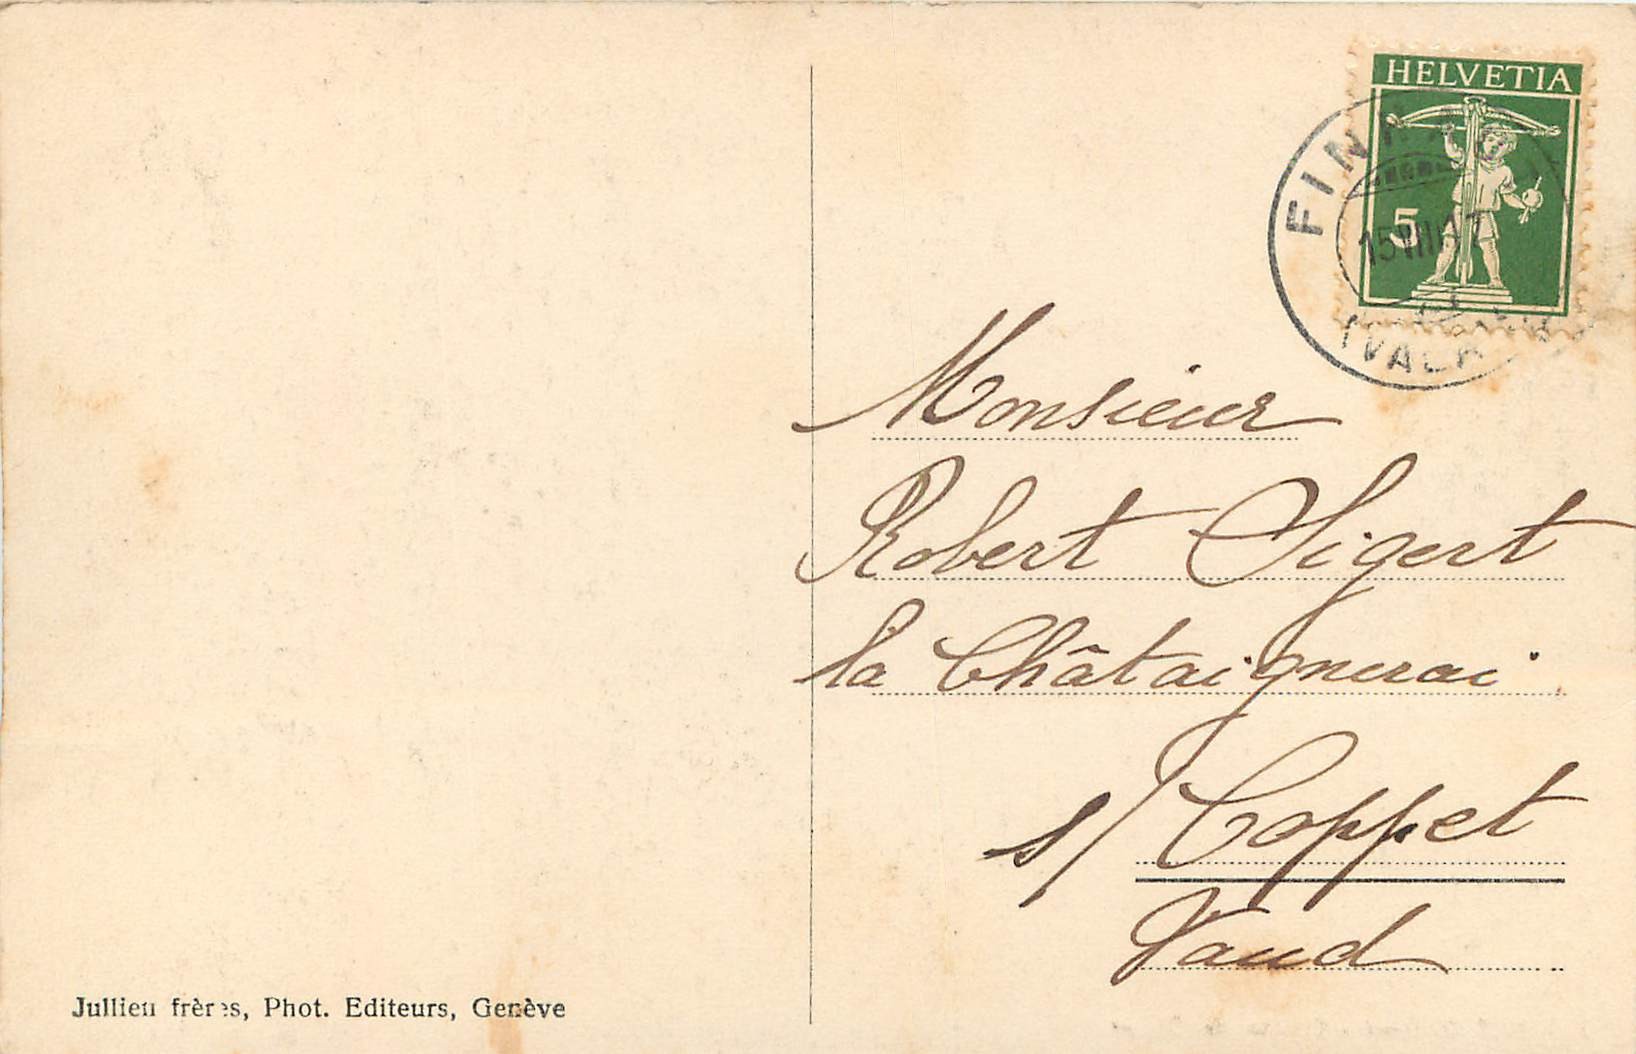 HELVETIA
5
15 VIII 17
Monsieur
Robert Sigert
la Châtaignerai
s/ Coppet
Vaud
Jullien frères, Phot. Editeurs, Genève